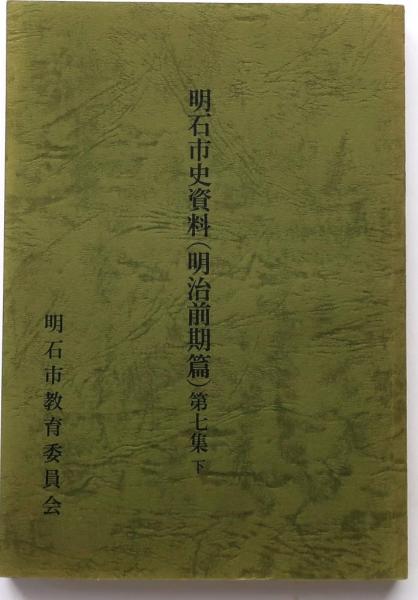 明石市史資料（明治前期篇）第七集 下
明石市教育委員会